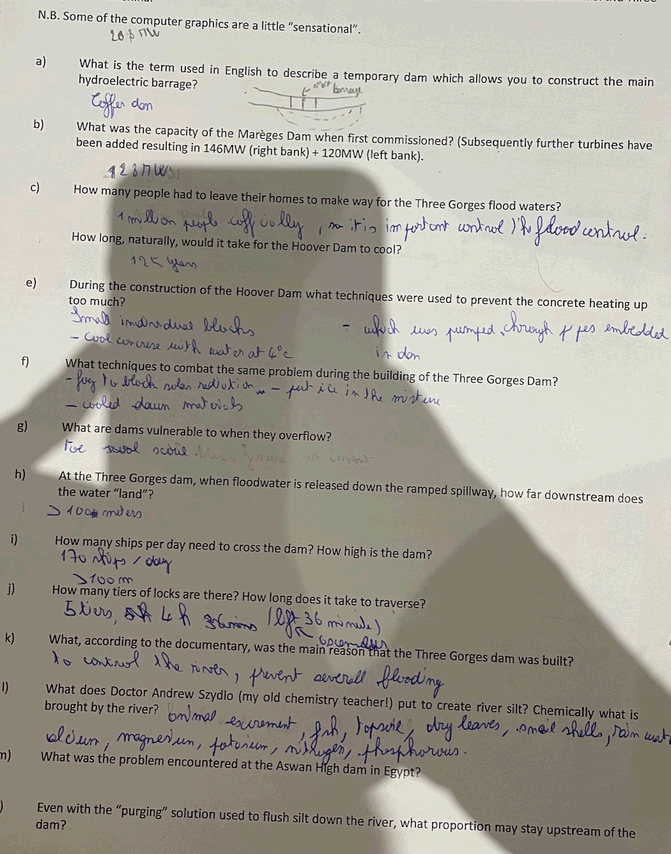 N.B. Some of the computer graphics are a little "sensational".
MW
a) What is the term used in English to describe a temporary dam which allows you to construct the main
hydroelectric barrage?
Coffer dan
barrage
b) What was the capacity of the Marèges Dam when first commissioned? (Subsequently further turbines have
been added resulting in 146MW (right bank) + 120MW (left bank).
128MW
c) How many people had to leave their homes to make way for the Three Gorges flood waters?
1 million people officially, so it is important control the flood control.
How long, naturally, would it take for the Hoover Dam to cool?
125 years
e) During the construction of the Hoover Dam what techniques were used to prevent the concrete heating up
too much?
Small individual blocks
- cool concrese with water at 4°c
- which was pumped through pipes embedded
in dan
f) What techniques to combat the same problem during the building of the Three Gorges Dam?
- fog to block solar radiation - put ice in the mixture
- cooled dawn materials
g) What are dams vulnerable to when they overflow?
scour
h) At the Three Gorges dam, when floodwater is released down the ramped spillway, how far downstream does
the water "land"?
> 100 meters
i) How many ships per day need to cross the dam? How high is the dam?
170 ships / day
>100 m
j) How many tiers of locks are there? How long does it take to traverse?
5 tiers, 4 h 36 mins (left 36 minute)
k) What, according to the documentary, was the main reason that the Three Gorges dam was built?
to control the river, prevent severall flooding
l) What does Doctor Andrew Szydlo (my old chemistry teacher!) put to create river silt? Chemically what is
brought by the river? animal excrement, fish, topsoil, dry leaves, snail shells, rain wat
alcium, magnesium, potassium, nitrogen, phosphorous.
m) What was the problem encountered at the Aswan High dam in Egypt?
) Even with the "purging" solution used to flush silt down the river, what proportion may stay upstream of the
dam?